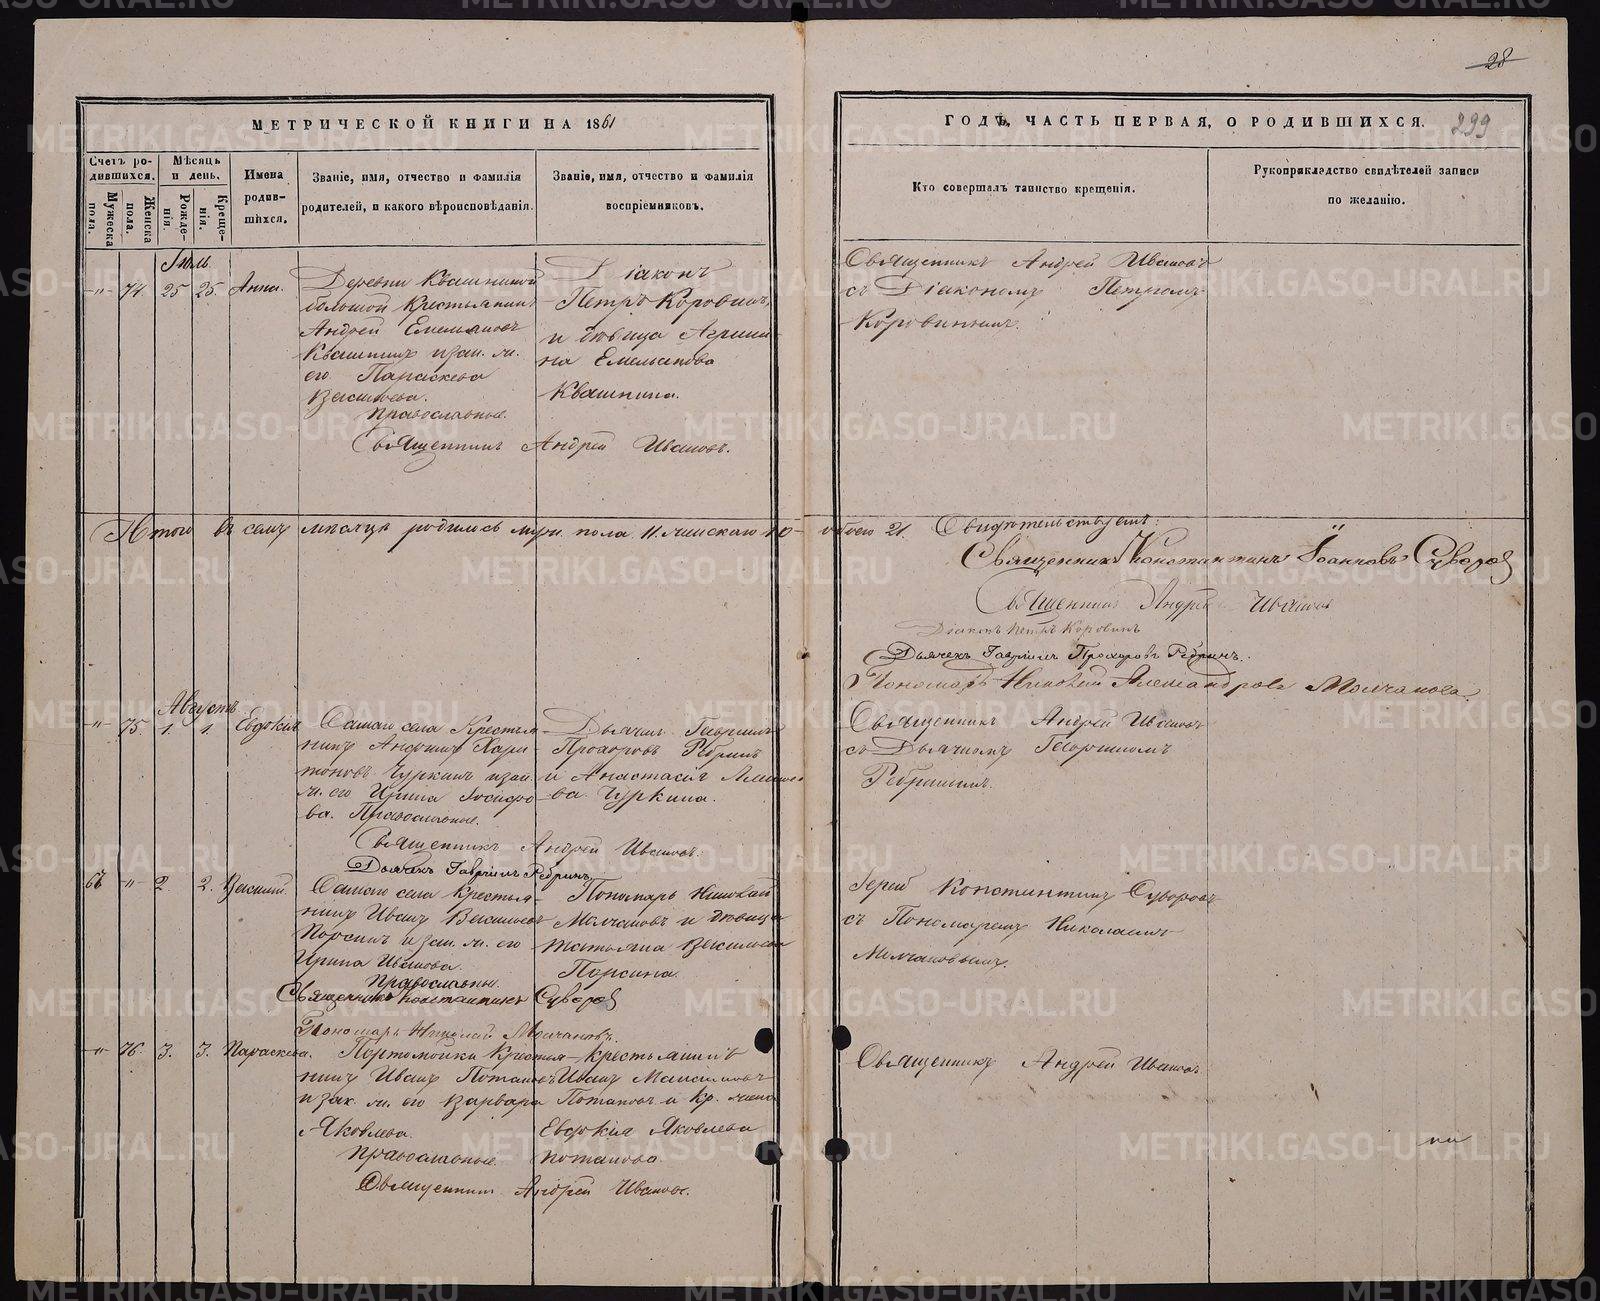 28
МЕТРИЧЕСКОЙ КНИГИ НА 1861
ГОДЪ, ЧАСТЬ ПЕРВАЯ, О РОДИВШИХСЯ.
299
Счетъ ро-
дившихся.
Мужеска
пола.
Женска
пола.
Мѣсяцъ
и день.
Рожде-
нія.
Креще-
нія.
Имена
родив-
шихся.
Званіе, имя, отчество и фамилія
родителей, и какого вѣроисповѣданія.
Званіе, имя, отчество и фамилія
воспріемниковъ.
Кто совершалъ таинство крещенія.
Рукоприкладство свидѣтелей записи
по желанію.
Іюль
-"- 74. 25 25. Анна.
Деревни Квашниной
большой Крестьянинъ
Андрей Емельяновъ
Квашнинъ и зак. ж.
его Параскева
Васильева.
Православные.
Діаконъ
Петръ Коровинъ,
и дѣвица Агрипи-
на Емельянова
Квашнина.
Священникъ Андрей Ивановъ
съ Діакономъ Петромъ
Коровинымъ.
Священникъ Андрей Ивановъ.
Итого въ семъ мѣсяцѣ родилось муж. пола 11. женскаго 10 - обоего 21.
Свидѣтельствуемъ:
Священникъ Константинъ Іоанновъ Суворовъ
Священникъ Андрей Ивановъ
Діаконъ Петръ Коровинъ
Дьячекъ Гавріилъ Прохоровъ Ребринъ.
Пономарь Николай Александровъ Молчановъ
Августъ
-"- 75. 1. 1. Евдокія
Самаго села Крестья-
нинъ Антонъ Хари-
тоновъ Чуркинъ и зак.
ж. его Ирина Іосифо-
ва. Православные.
Дьячекъ Гавріилъ
Прохоровъ Ребринъ
и Анастасія
ва Чуркина.
Священникъ Андрей Ивановъ
съ Дьячкомъ Гавріиломъ
Ребринымъ.
Священникъ Андрей Ивановъ.
Дьячекъ Гавріилъ Ребринъ.
67 -"- 2. 2. Василій.
Самаго села Крестья-
нинъ Иванъ Васильевъ
Порсинъ и зак. ж. его
Ирина Иванова.
Православные.
Пономарь Николай
Молчановъ и дѣвица
Татьяна Васильева
Порсина.
Іерей Константинъ Суворовъ
съ Пономаремъ Николаемъ
Молчановымъ.
Священникъ Константинъ Суворовъ
Пономарь Николай Молчановъ.
-"- 76. 3. 3. Параскева.
Портомойки Крестья-
нинъ Иванъ Потаповъ
и зак. ж. его Варвара
Яковлева.
Православные.
Крестьянинъ
Иванъ
Потаповъ и Кр. жена
Евдокія Яковлева
Потапова.
Священникъ Андрей Ивановъ
Священникъ Андрей Ивановъ.
METRIKI.GASO-URAL.RU